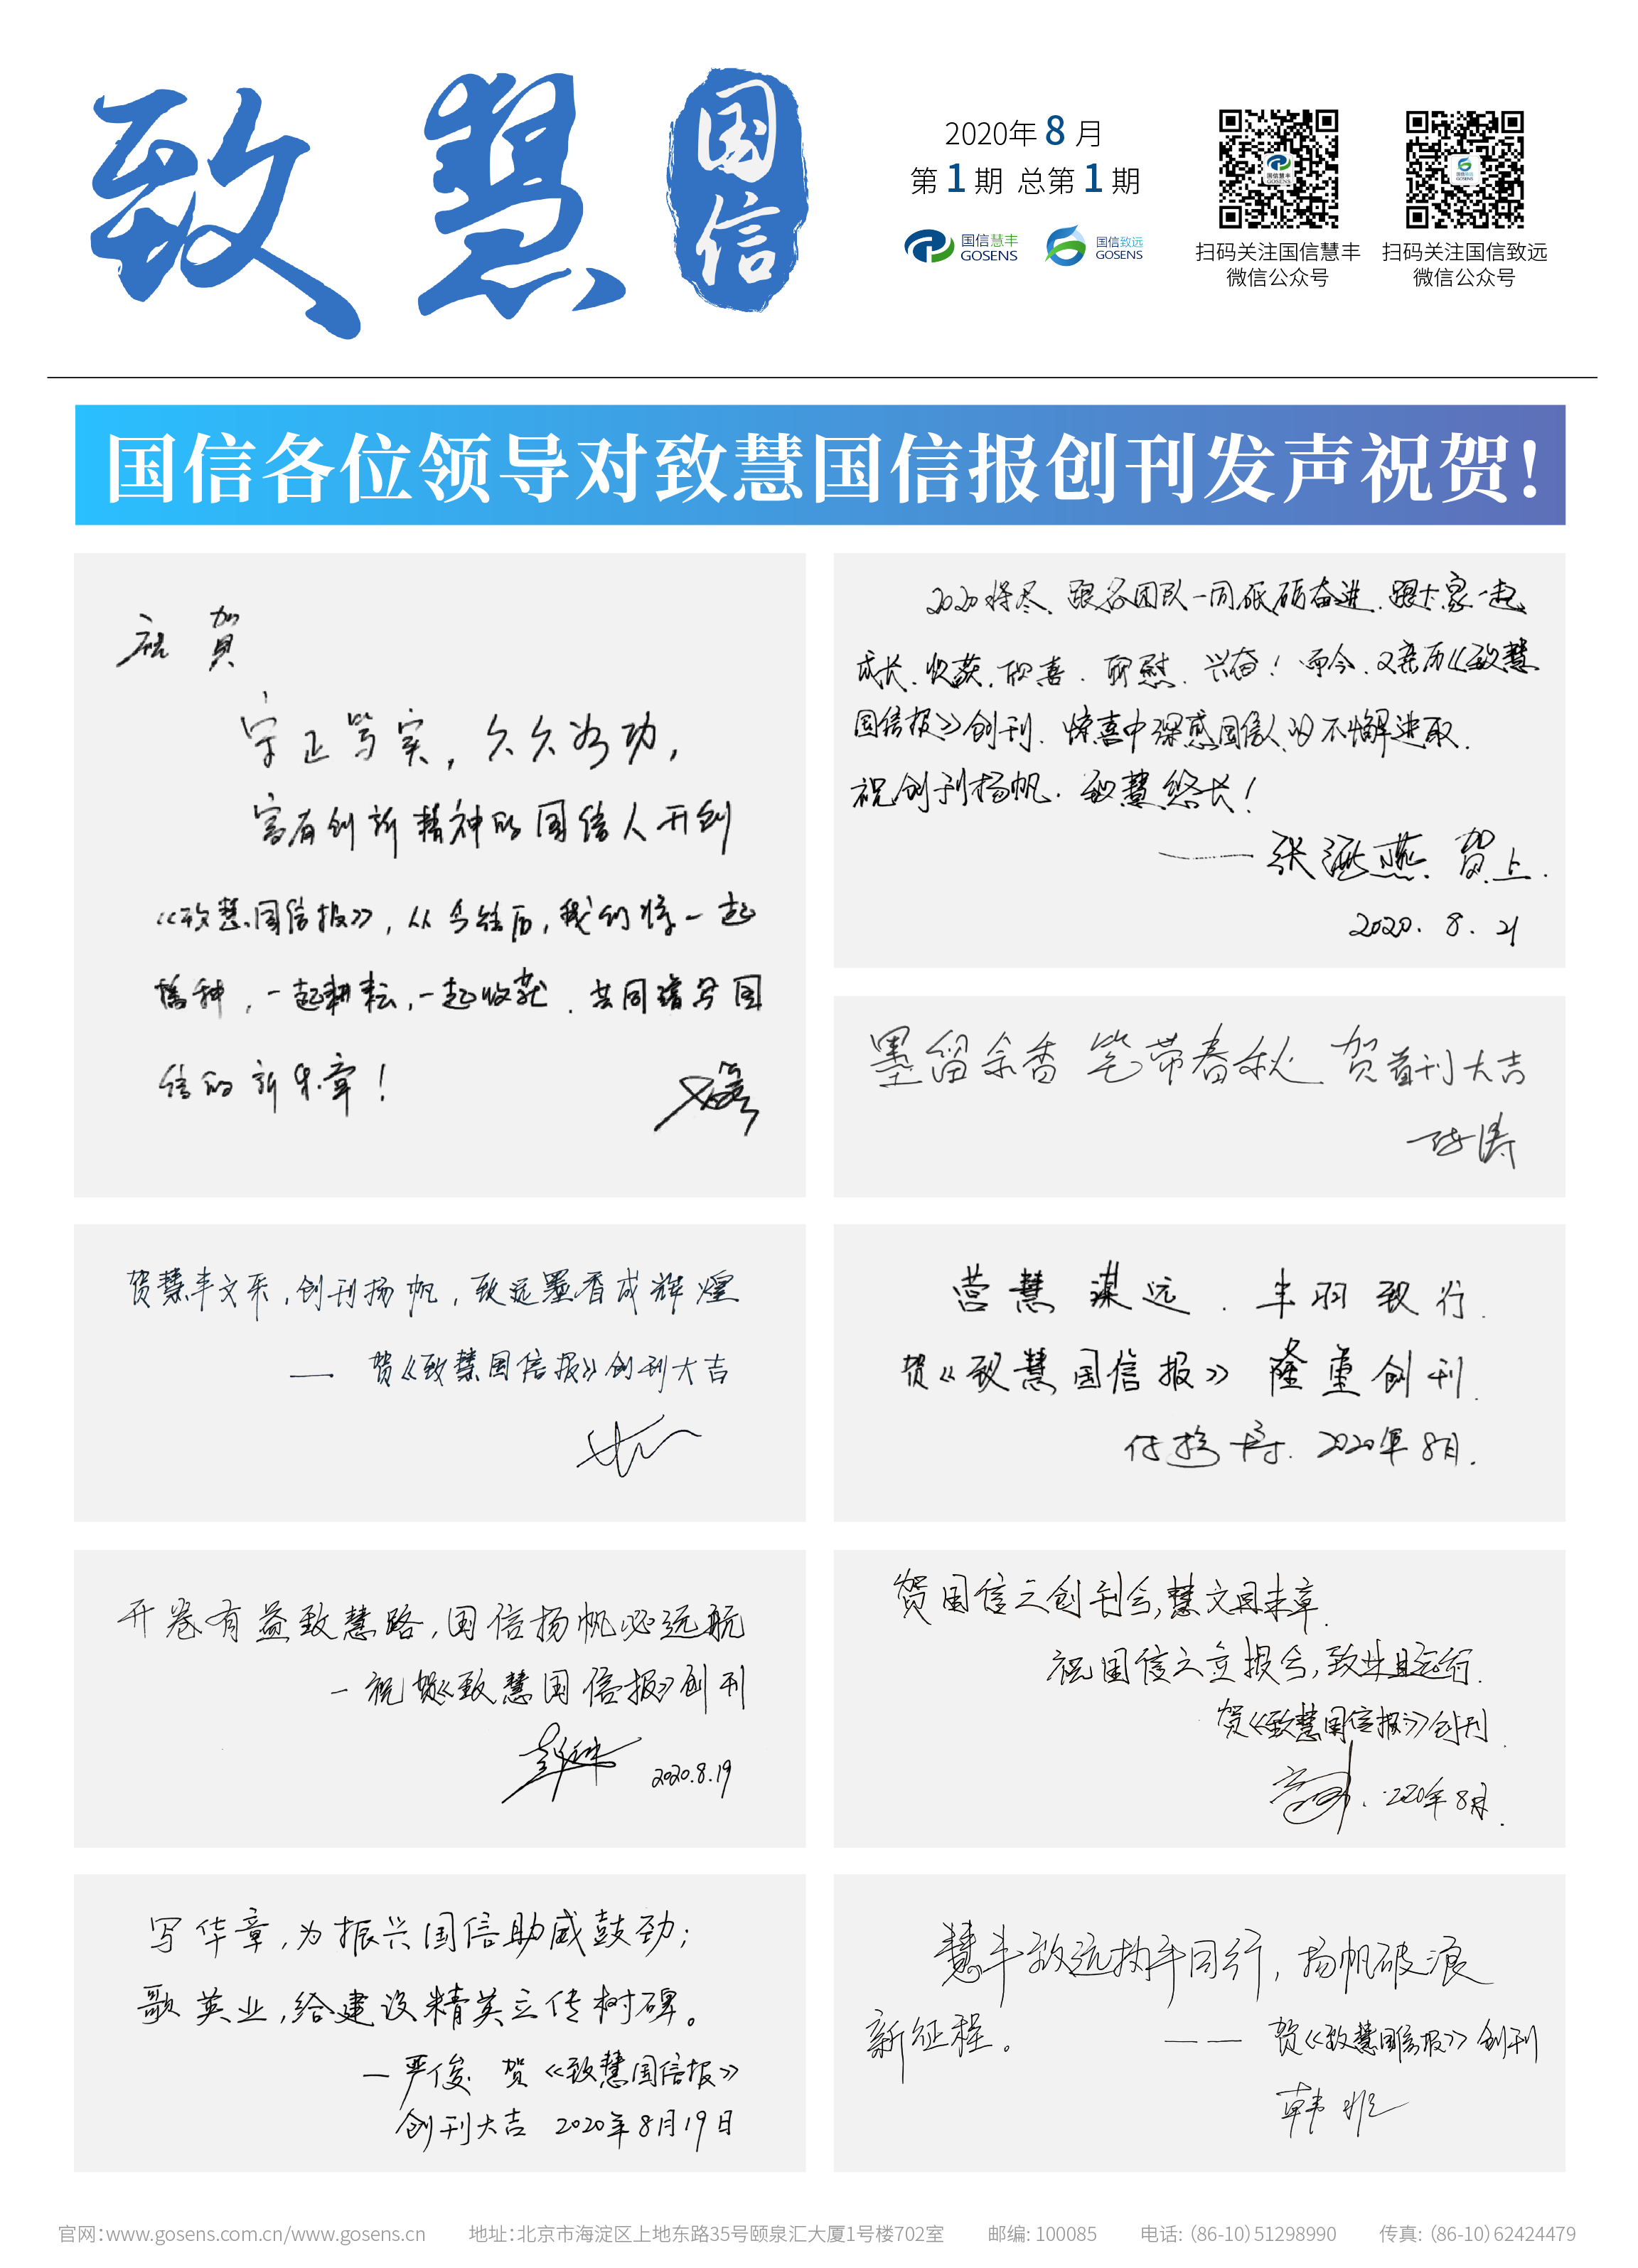 致慧
国信
2020年8月
第1期 总第1期
国信慧丰
GOSENS
国信致远
GOSENS
扫码关注国信慧丰
微信公众号
扫码关注国信致远
微信公众号
国信各位领导对致慧国信报创刊发声祝贺！
祝贺
守正笃实，久久为功，
富有创新精神的国信人开创
《致慧国信报》，从今往后，我们将一起
播种，一起耕耘，一起收获．共同谱写国
信的新乐章！
2020将尽、跟各团队一同砥砺奋进、跟大家一起
成长、收获、欣喜、欣慰、兴奋！而今、又亲历《致慧
国信报》创刊、惊喜中深感国信人的不懈进取．
祝创刊扬帆．致慧悠长！
——张海燕 贺上．
2020．8．21
墨留余香 笔带春秋 贺首刊大吉
陈涛
贺慧丰文采，创刊扬帆，致远墨香成辉煌
— 贺《致慧国信报》创刊大吉
营慧谋远．丰羽致行．
贺《致慧国信报》隆重创刊．
2020年8月．
开卷有益致慧路，国信扬帆必远航
—祝贺《致慧国信报》创刊
2020.8.19
贺国信之创刊兮，慧文因末章．
祝国信之立报兮，致业且远行．
贺《致慧国信报》创刊．
2020年8月．
写华章，为振兴国信助威鼓劲；
歌英业，给建设精英立传树碑。
—严俊 贺《致慧国信报》
创刊大吉 2020年8月19日
慧丰致远执手同行，扬帆破浪
新征程。 —— 贺《致慧国信报》创刊
韩
官网：www.gosens.com.cn/www.gosens.cn 地址：北京市海淀区上地东路35号颐泉汇大厦1号楼702室 邮编：100085 电话：(86-10) 51298990 传真：(86-10) 62424479